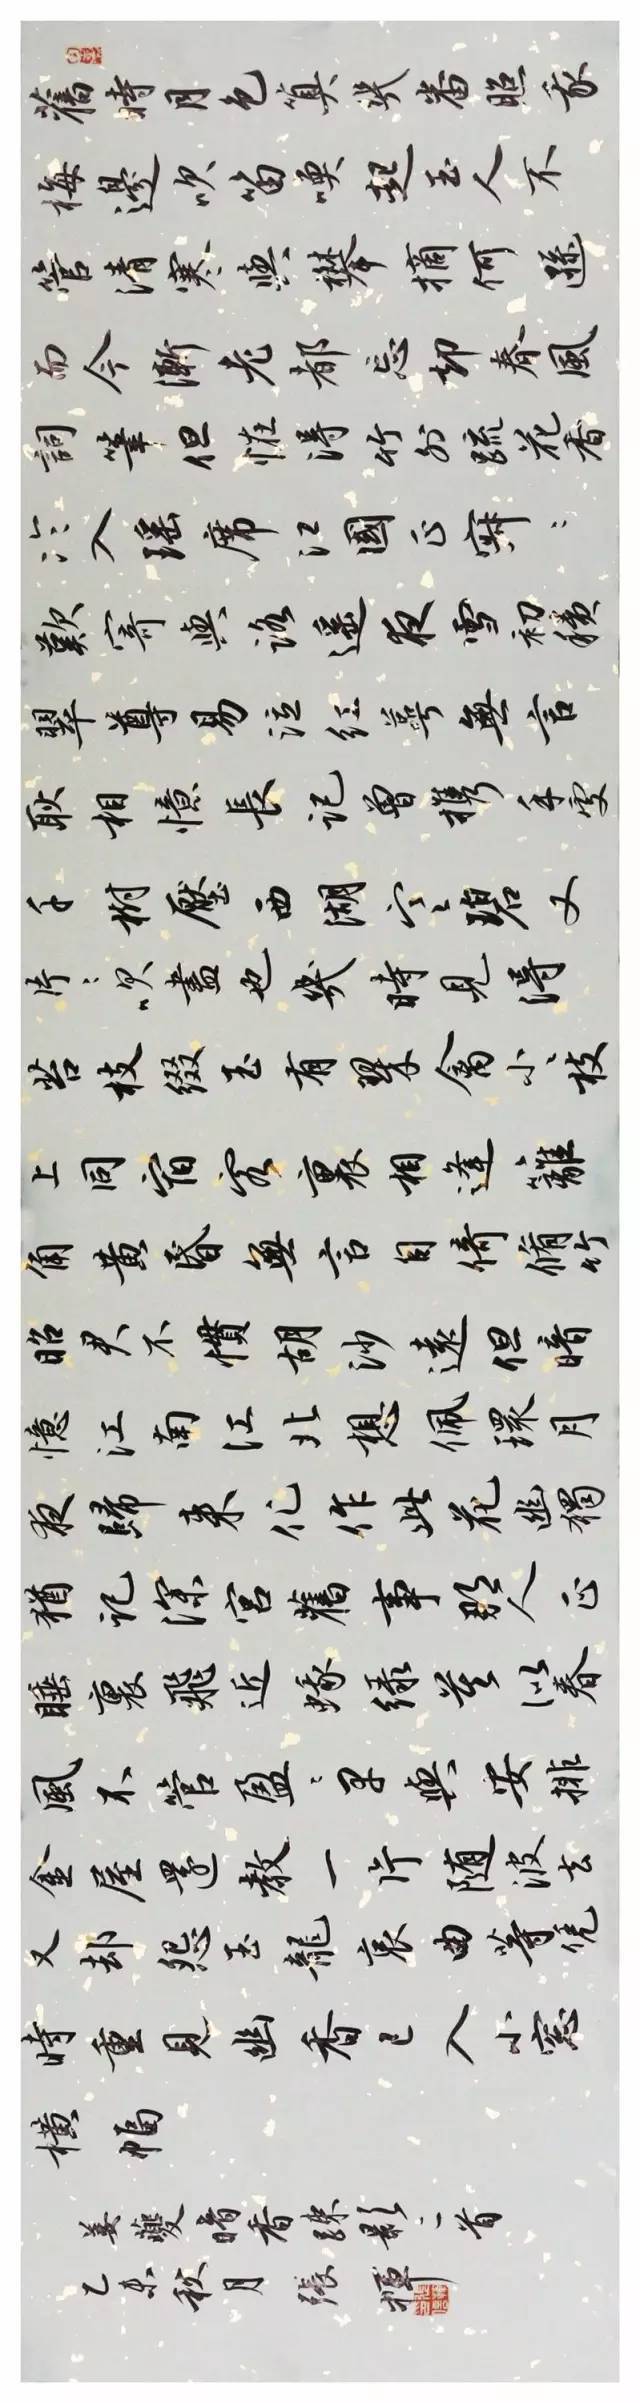 舊時月色算幾番照我
梅邊吹笛喚起玉人不
管清寒與攀摘何遜
而今漸老都忘却春風
詞筆但怪得竹外疏花香
冷入瑶席江國正寂〻
歎寄與路遥夜雪初積
翠尊易泣紅萼無言
耿相憶長記曾攜手處
千樹壓西湖寒碧又
片〻吹盡也幾時見得
苔枝綴玉有翠禽小〻枝
上同宿客裏相逢籬
角黃昏無言自倚脩竹
昭君不慣胡沙遠但暗
憶江南江北想佩環月
夜歸來化作此花幽獨
猶記深宮舊事那人正
睡裏飛近蛾緑莫似春
風不管盈〻早與安排
金屋還教一片随波去
又却怨玉龍哀曲等恁
時重覓幽香已入小窓
橫幅
姜夔暗香疎影二首
乙未秋月張輝